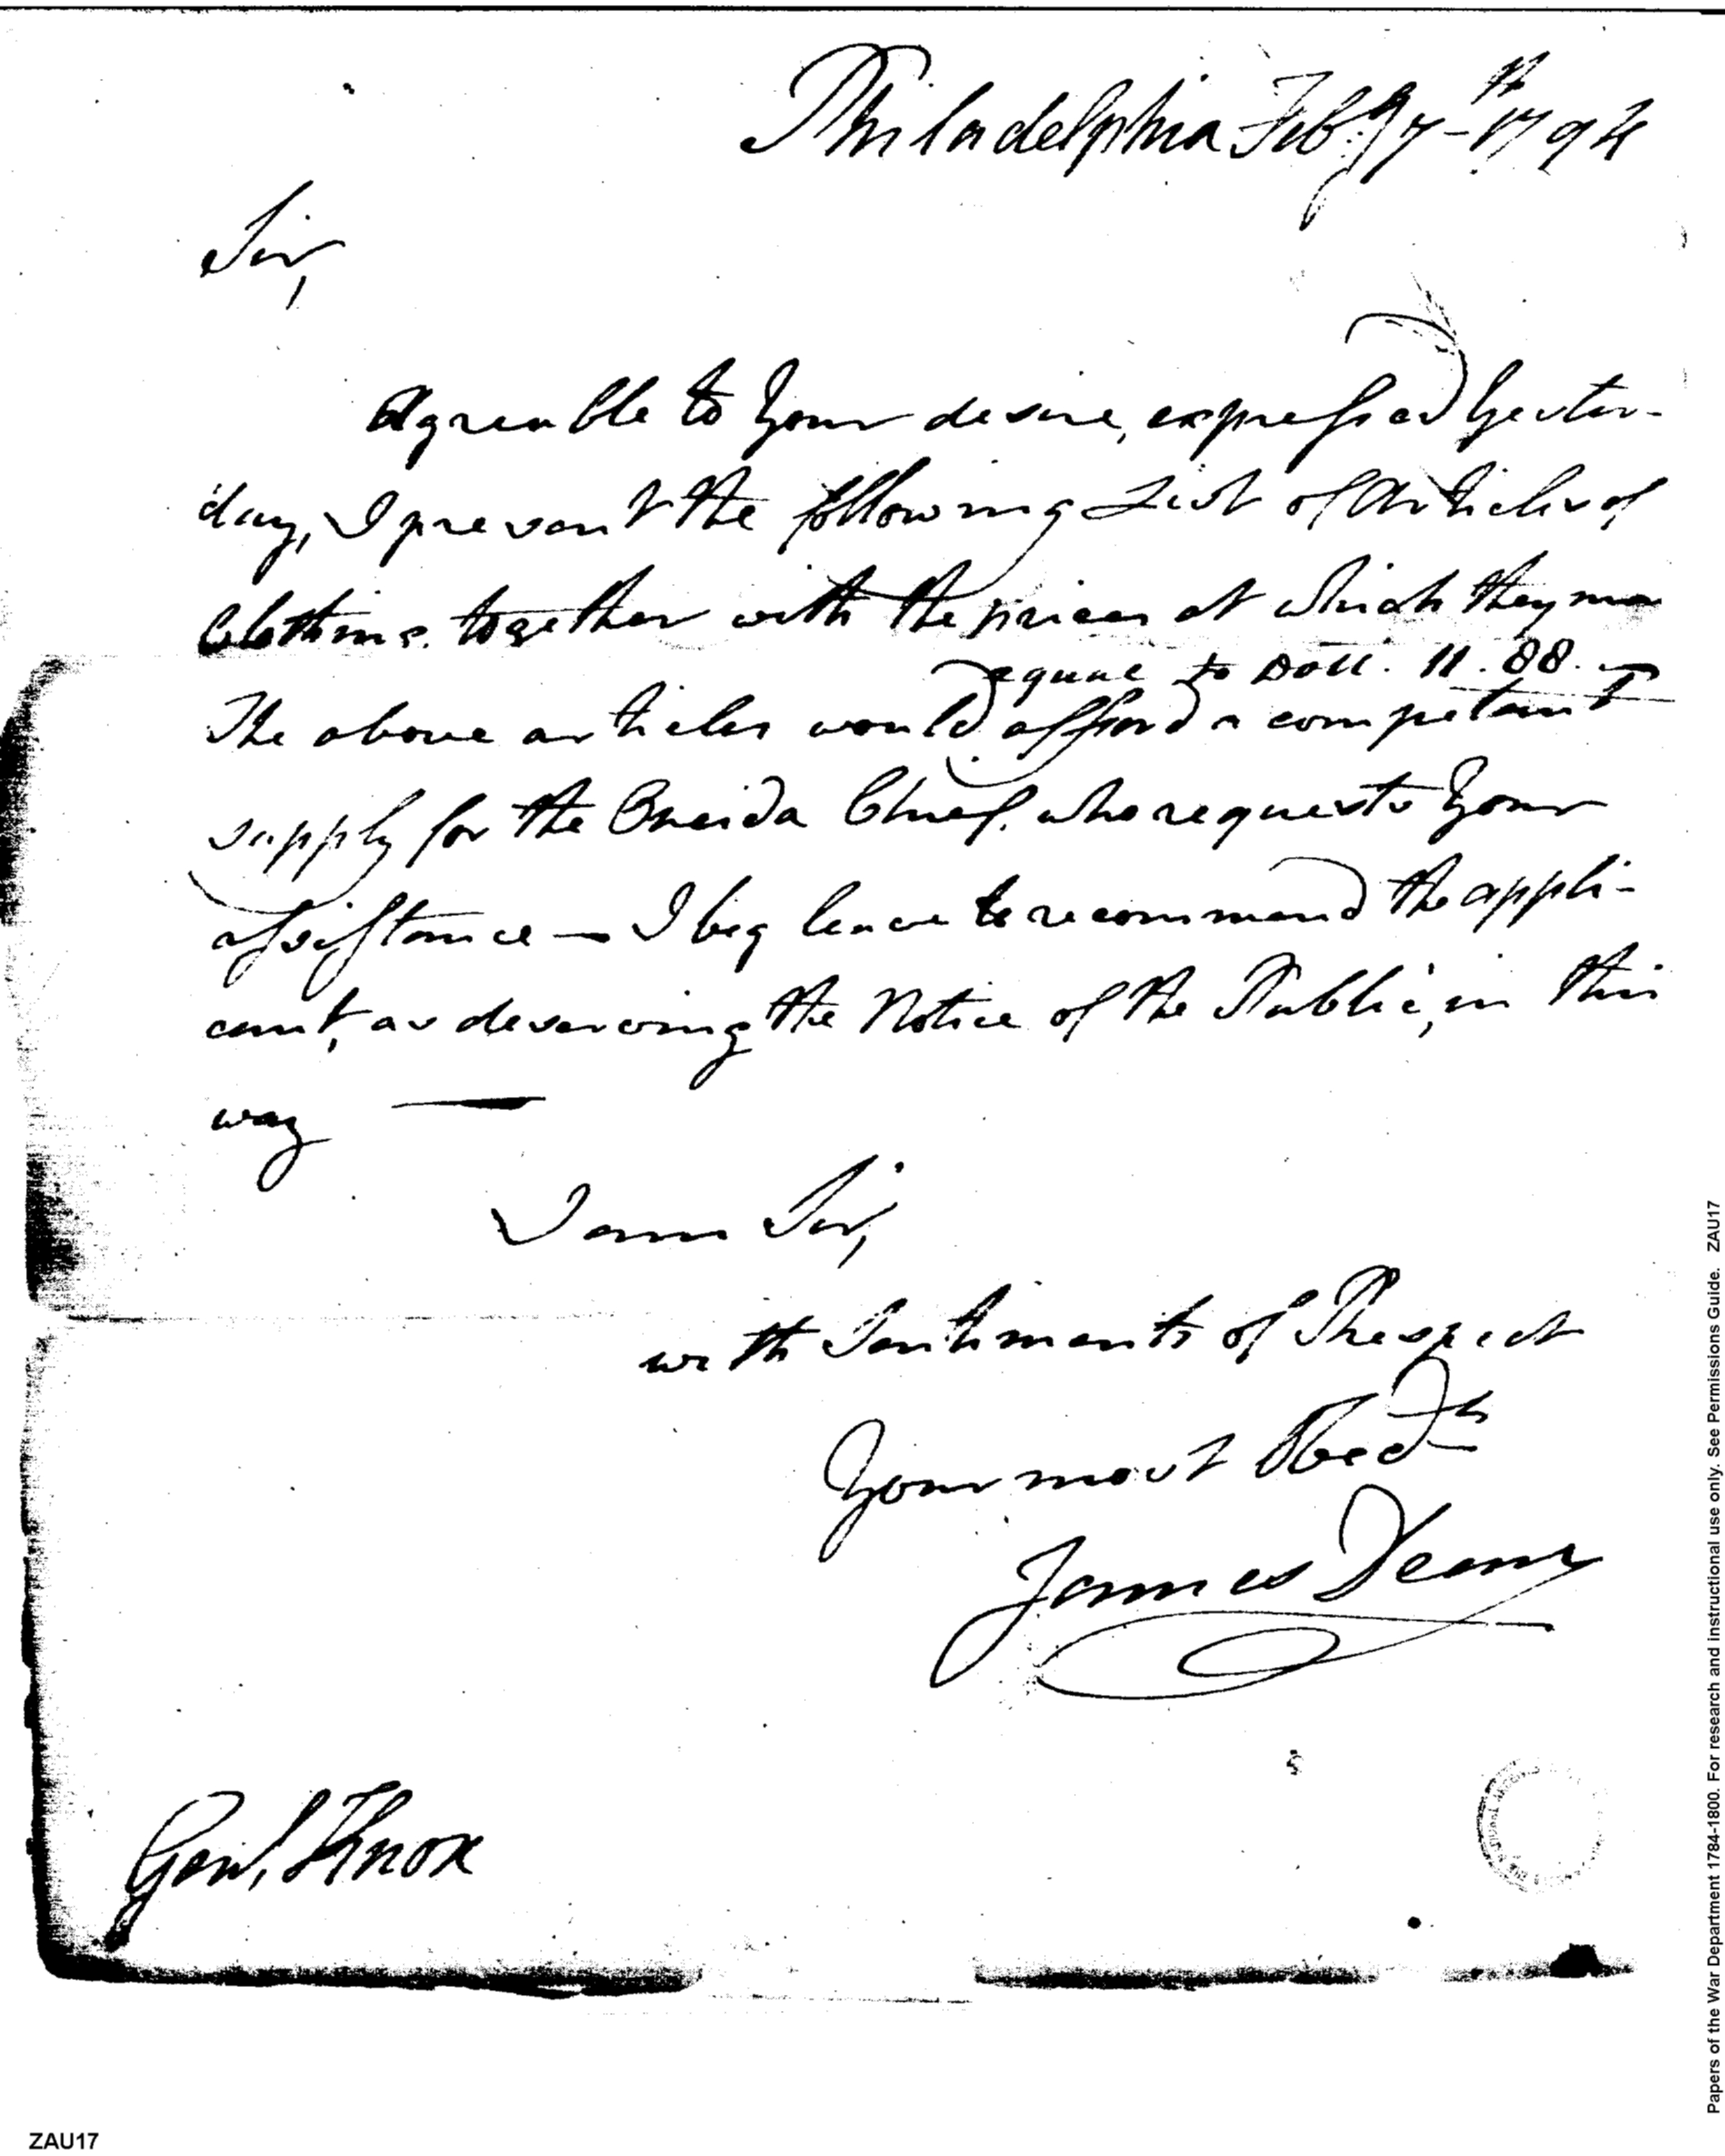 Philadelphia Feby. 7th 1794
Sir,
Agreable to Your desire, expressed Yester-
day, I present the following List of Articles of
Clothing together with the prices at which they ma
equal to Doll. 11.88.
The above articles would afford a competent
supply for the Oneida Chief, who requests Your
assistance — I beg leave to recommend the appli-
cant, as deserving the Notice of the Public, in this
way —
I am Sir,
with Sentiments of Respect
Your most Obedt
James Dean
Genl. Knox
Papers of the War Department 1784-1800. For research and instructional use only. See Permissions Guide. ZAU17
ZAU17